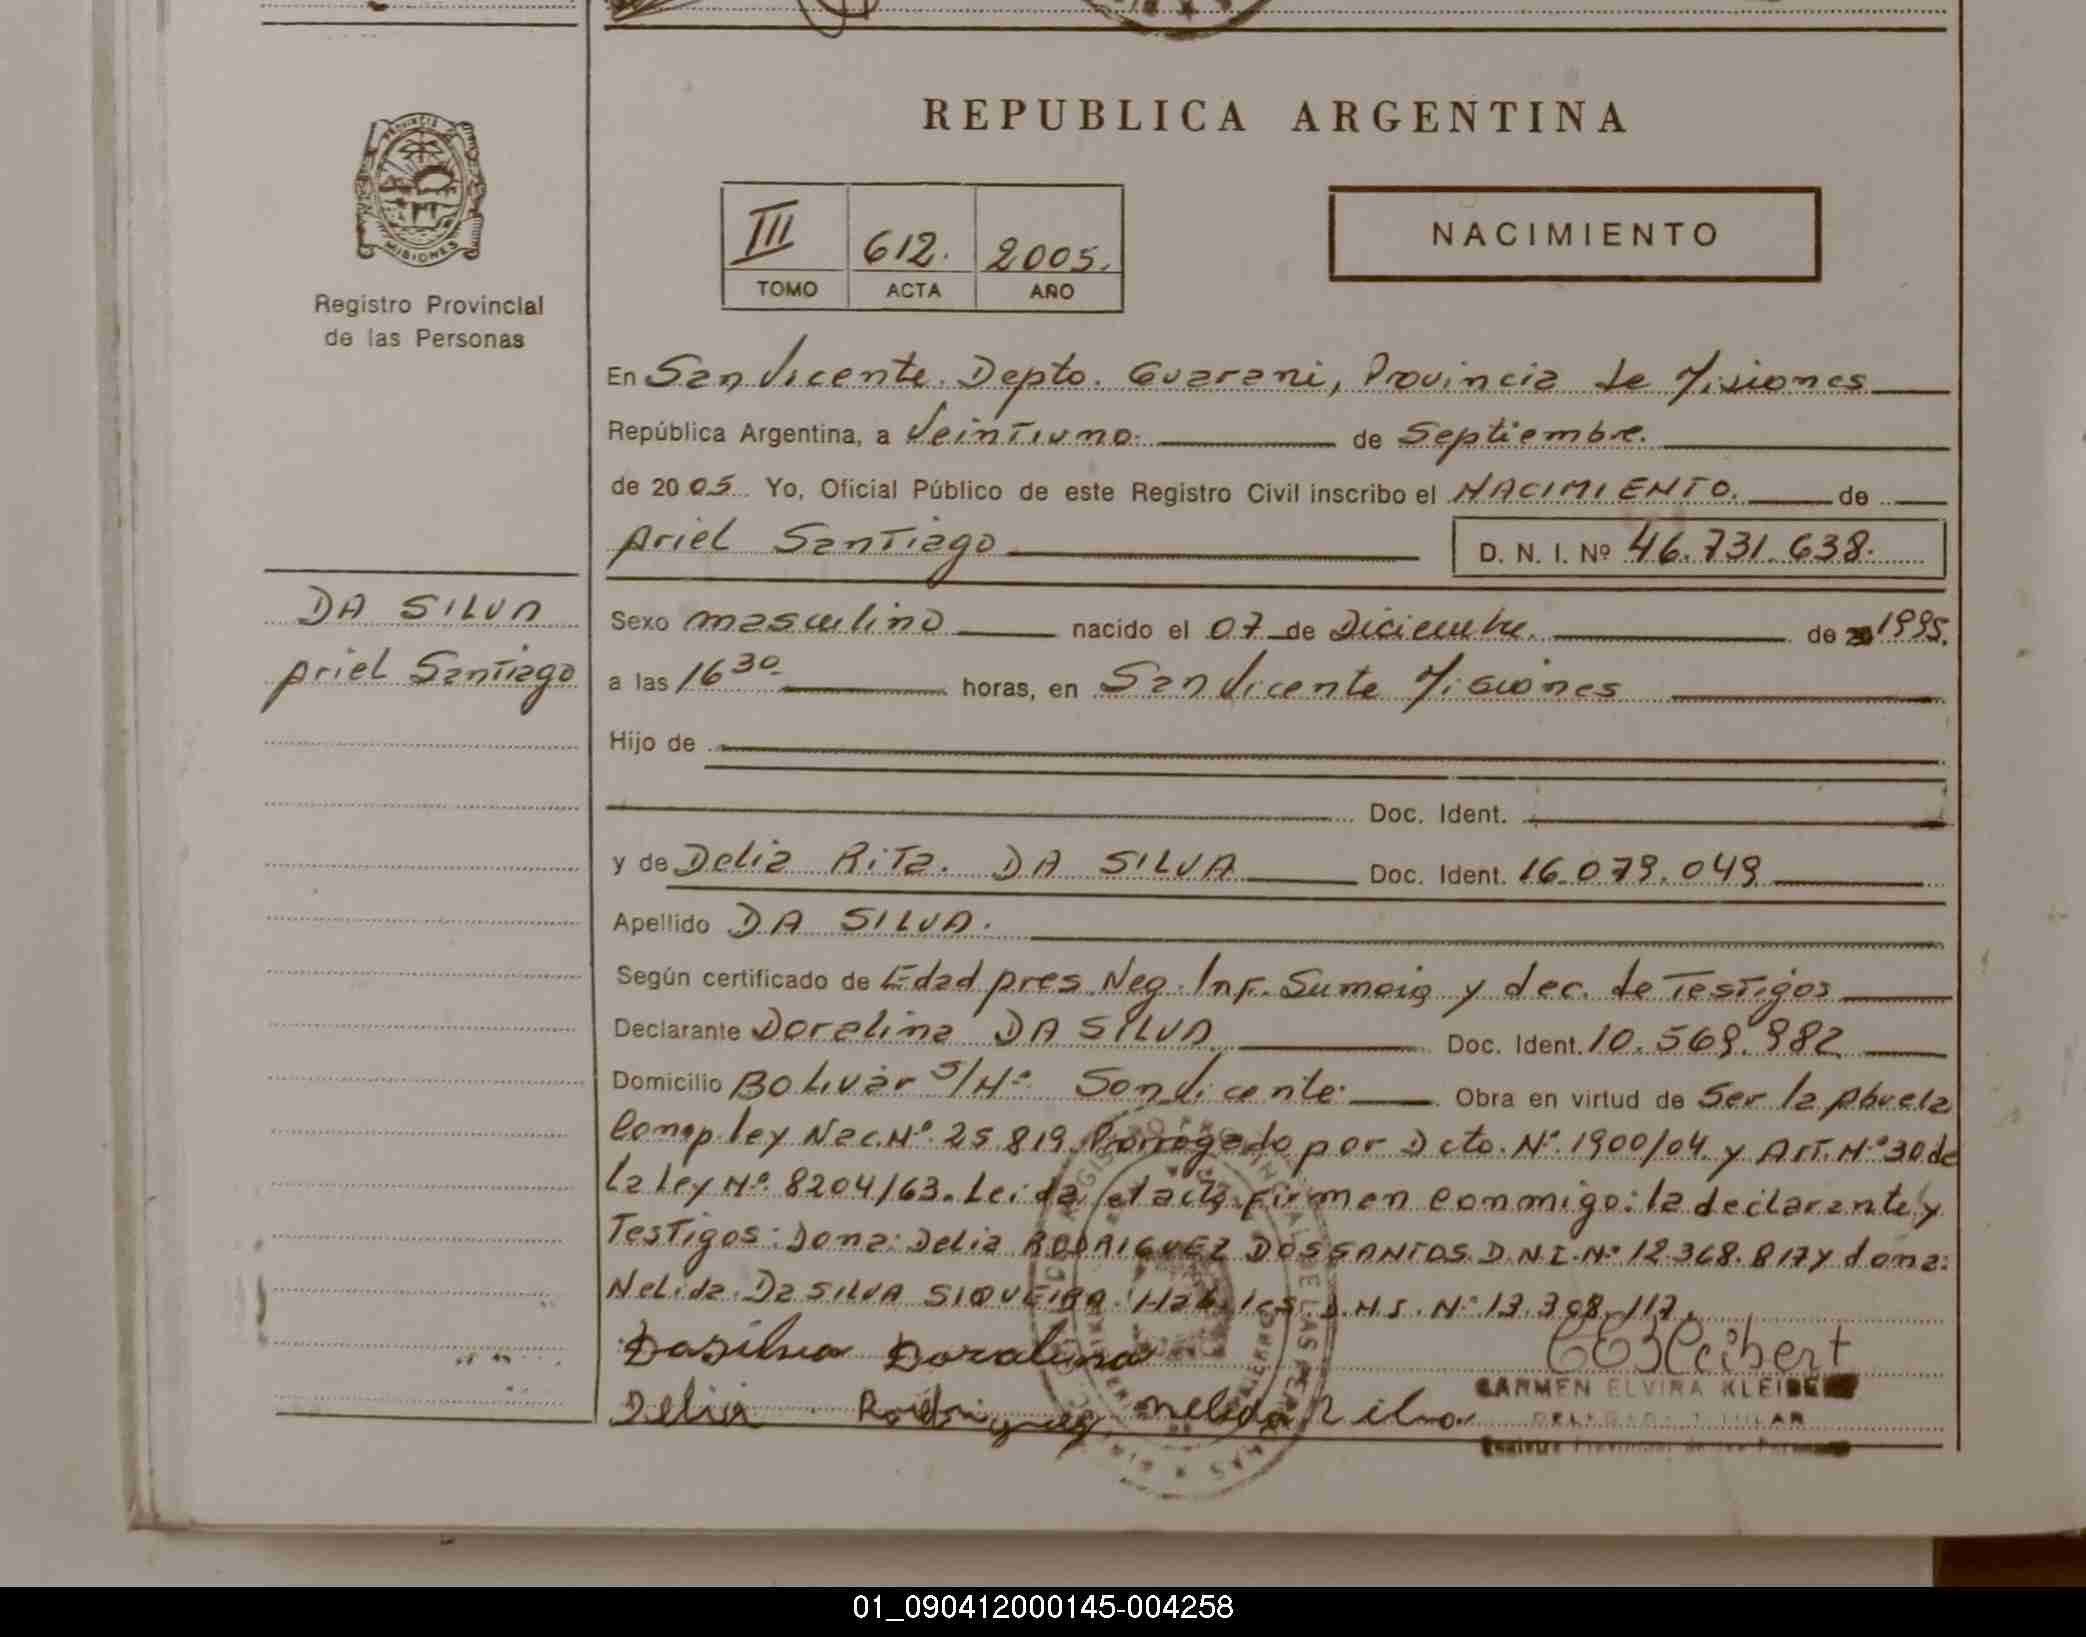 REPUBLICA ARGENTINA
PROVINCIA DE MISIONES
Registro Provincial
de las Personas
III 612. 2005.
TOMO ACTA AÑO
NACIMIENTO
En San Vicente. Depto. Guarani, Provincia de Misiones
República Argentina, a Veintiuno. de Septiembre.
de 2005 Yo, Oficial Público de este Registro Civil inscribo el NACIMIENTO. de
Ariel Santiago D. N. I. Nº 46.731.638.
DA SILVA
Ariel Santiago
Sexo masculino nacido el 07 de Diciembre. de 1995.
a las 16 30 horas, en San Vicente Misiones
Hijo de
Doc. Ident.
y de Delia Rita. DA SILVA Doc. Ident. 16.079.049
Apellido DA SILVA.
Según certificado de Edad pres. Neg. Inf. Sumaia y dec. de Testigos
Declarante Doralina DA SILVA Doc. Ident. 10.569.982
Domicilio Bolivar S/Nº San Vicente. Obra en virtud de Ser la Abuela
Conop ley Nac. Nº 25.819. Prorrogado por Dcto. Nº 1900/04 y Art. Nº 30 de
la ley Nº 8204/63. Leida el acta firman conmigo: la declarante y
Testigos: Dona: Delia RODRIGUEZ DOSSANTOS D.N.I. Nº 12.368.817 y dona:
Nelida Da SILVA SIQUEIRA. Habiles. D.N.I. Nº 13.308.117.
Dasilva Doralina
Delia Rodriguez Nelida Silva
CARMEN ELVIRA KLEIBERT
DELEGADA TITULAR
Registro Provincial de las Personas
01_090412000145-004258